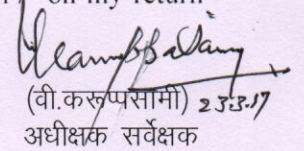 on my return
(वी.करूप्पसामी) 23.3.17
अधीक्षक सर्वेक्षक